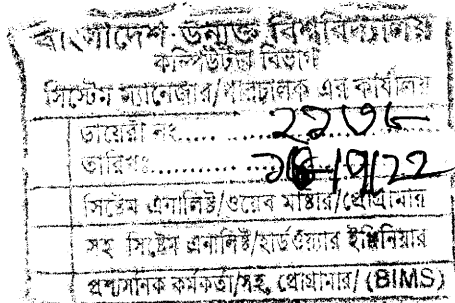 বাংলাদেশ উন্মুক্ত বিশ্ববিদ্যালয়
কম্পিউটার বিভাগ
সিস্টেম ম্যানেজার/পরিচালক এর কার্যালয়
ডায়েরী নং.....
তারিখঃ.....
সিস্টেম এনালিষ্ট/ওয়েব মাষ্টার/প্রোগ্রামার
সহ সিষ্টেম এনালিষ্ট/হার্ডওয়্যার ইঞ্জিনিয়ার
প্রশাসনিক কর্মকর্তা/সহ, প্রোগ্রামার/ (BIMS)